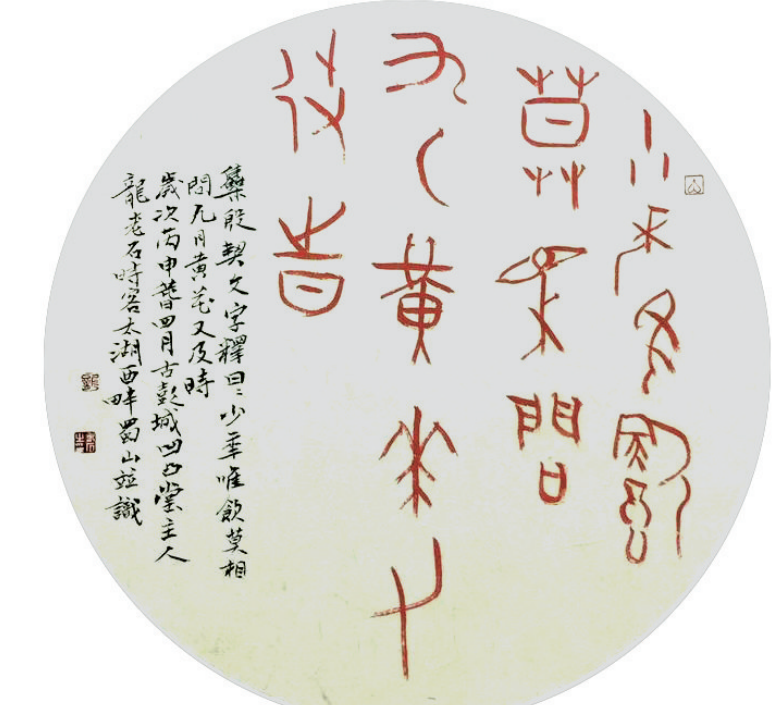 少年唯飲
莫相問
九月黄花又
及時
集殷契文字釋曰：少年唯飲莫相
問九月黄花又及時
歲次丙申四月古彭城凹凸堂主人
龍老石時客太湖西畔蜀山並識